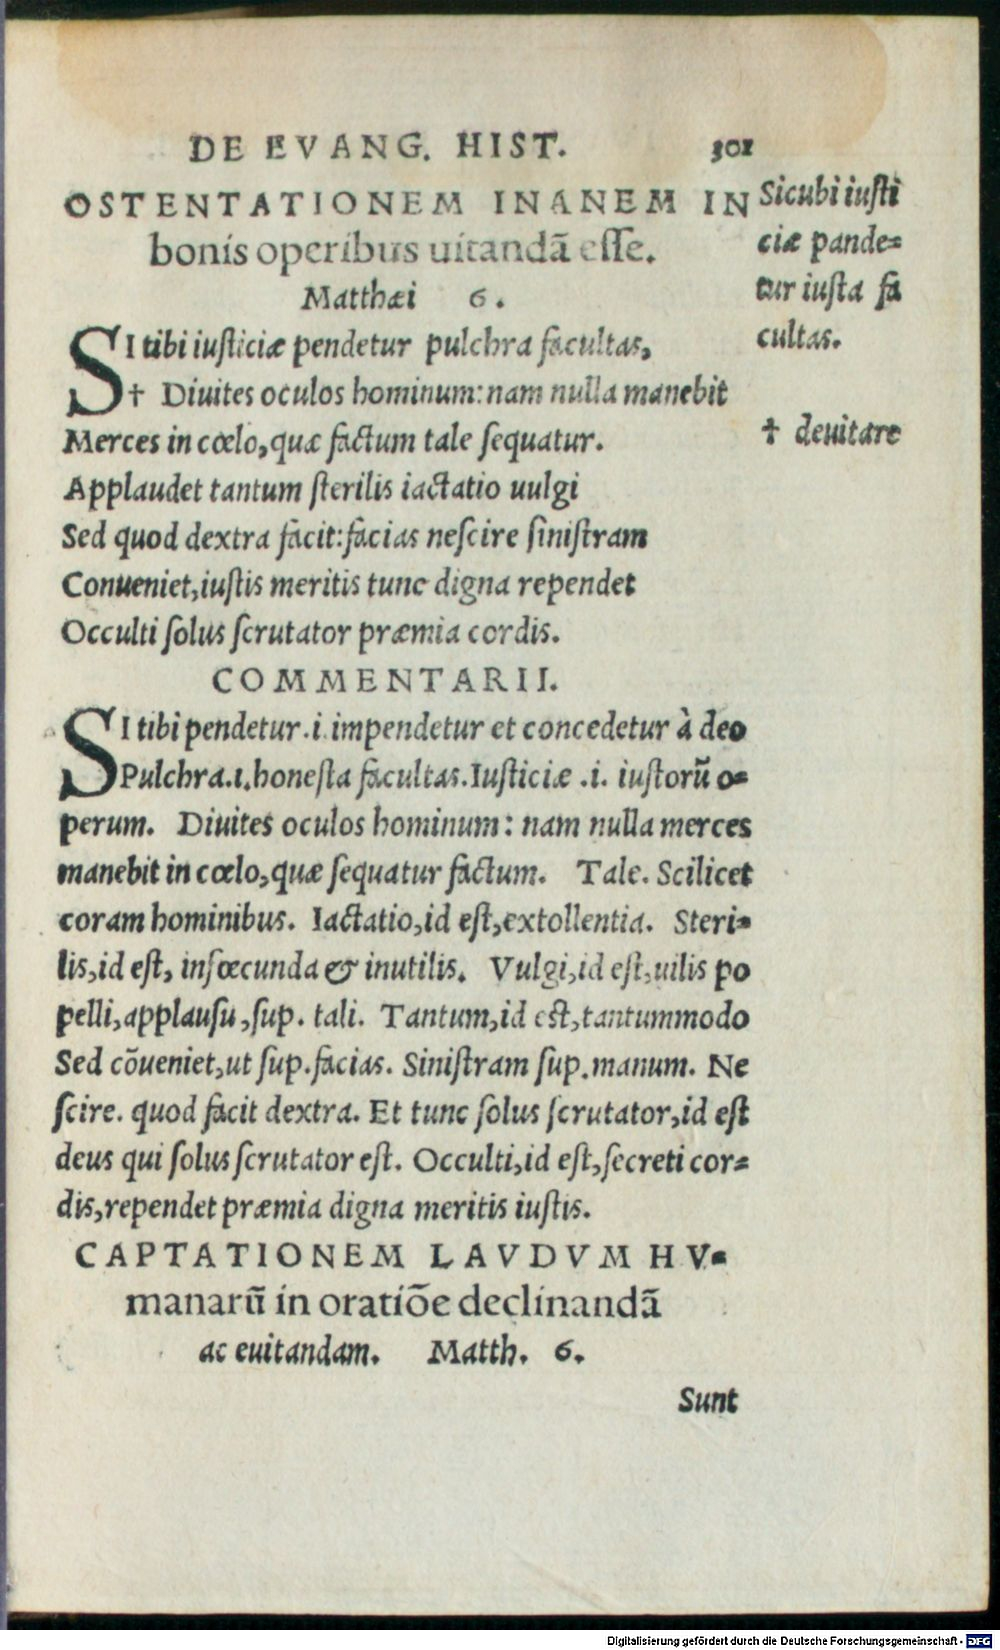 DE EVANG. HIST. 301
OSTENTATIONEM INANEM IN
bonis operibus uitandã esse.
Matthæi 6.
SI tibi iusticiæ pendetur pulchra facultas,
† Diuites oculos hominum: nam nulla manebit
Merces in cœlo, quæ factum tale sequatur.
Applaudet tantum sterilis iactatio uulgi
Sed quod dextra facit: facias nescire sinistram
Conueniet, iustis meritis tunc digna rependet
Occulti solus scrutator præmia cordis.
Sicubi iusti
ciæ pande=
tur iusta fa
cultas.
† deuitare
COMMENTARII.
SI tibi pendetur .i. impendetur et concedetur à deo
Pulchra.i. honesta facultas. Iusticiæ .i. iustorũ o=
perum. Diuites oculos hominum: nam nulla merces
manebit in cœlo, quæ sequatur factum. Tale. Scilicet
coram hominibus. Iactatio, id est, extollentia. Steri=
lis, id est, infœcunda & inutilis. Vulgi, id est, uilis po
pelli, applausu, sup. tali. Tantum, id est, tantummodo
Sed cõueniet, ut sup. facias. Sinistram sup. manum. Ne
scire. quod facit dextra. Et tunc solus scrutator, id est
deus qui solus scrutator est. Occulti, id est, secreti cor=
dis, rependet præmia digna meritis iustis.
CAPTATIONEM LAVDVM HV=
manarũ in oratiõe declinandã
ac euitandam. Matth. 6.
Sunt
Digitalisierung gefördert durch die Deutsche Forschungsgemeinschaft - DFG